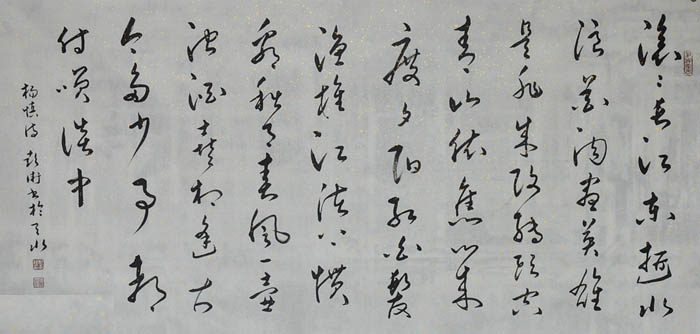 滚滚长江东逝水
浪花淘尽英雄
是非成败转头空
青山依旧在几
度夕阳红白髮
渔樵江渚上惯
看秋月春风一壶
浊酒喜相逢古
今多少事都
付笑谈中
杨慎诗 书於天水